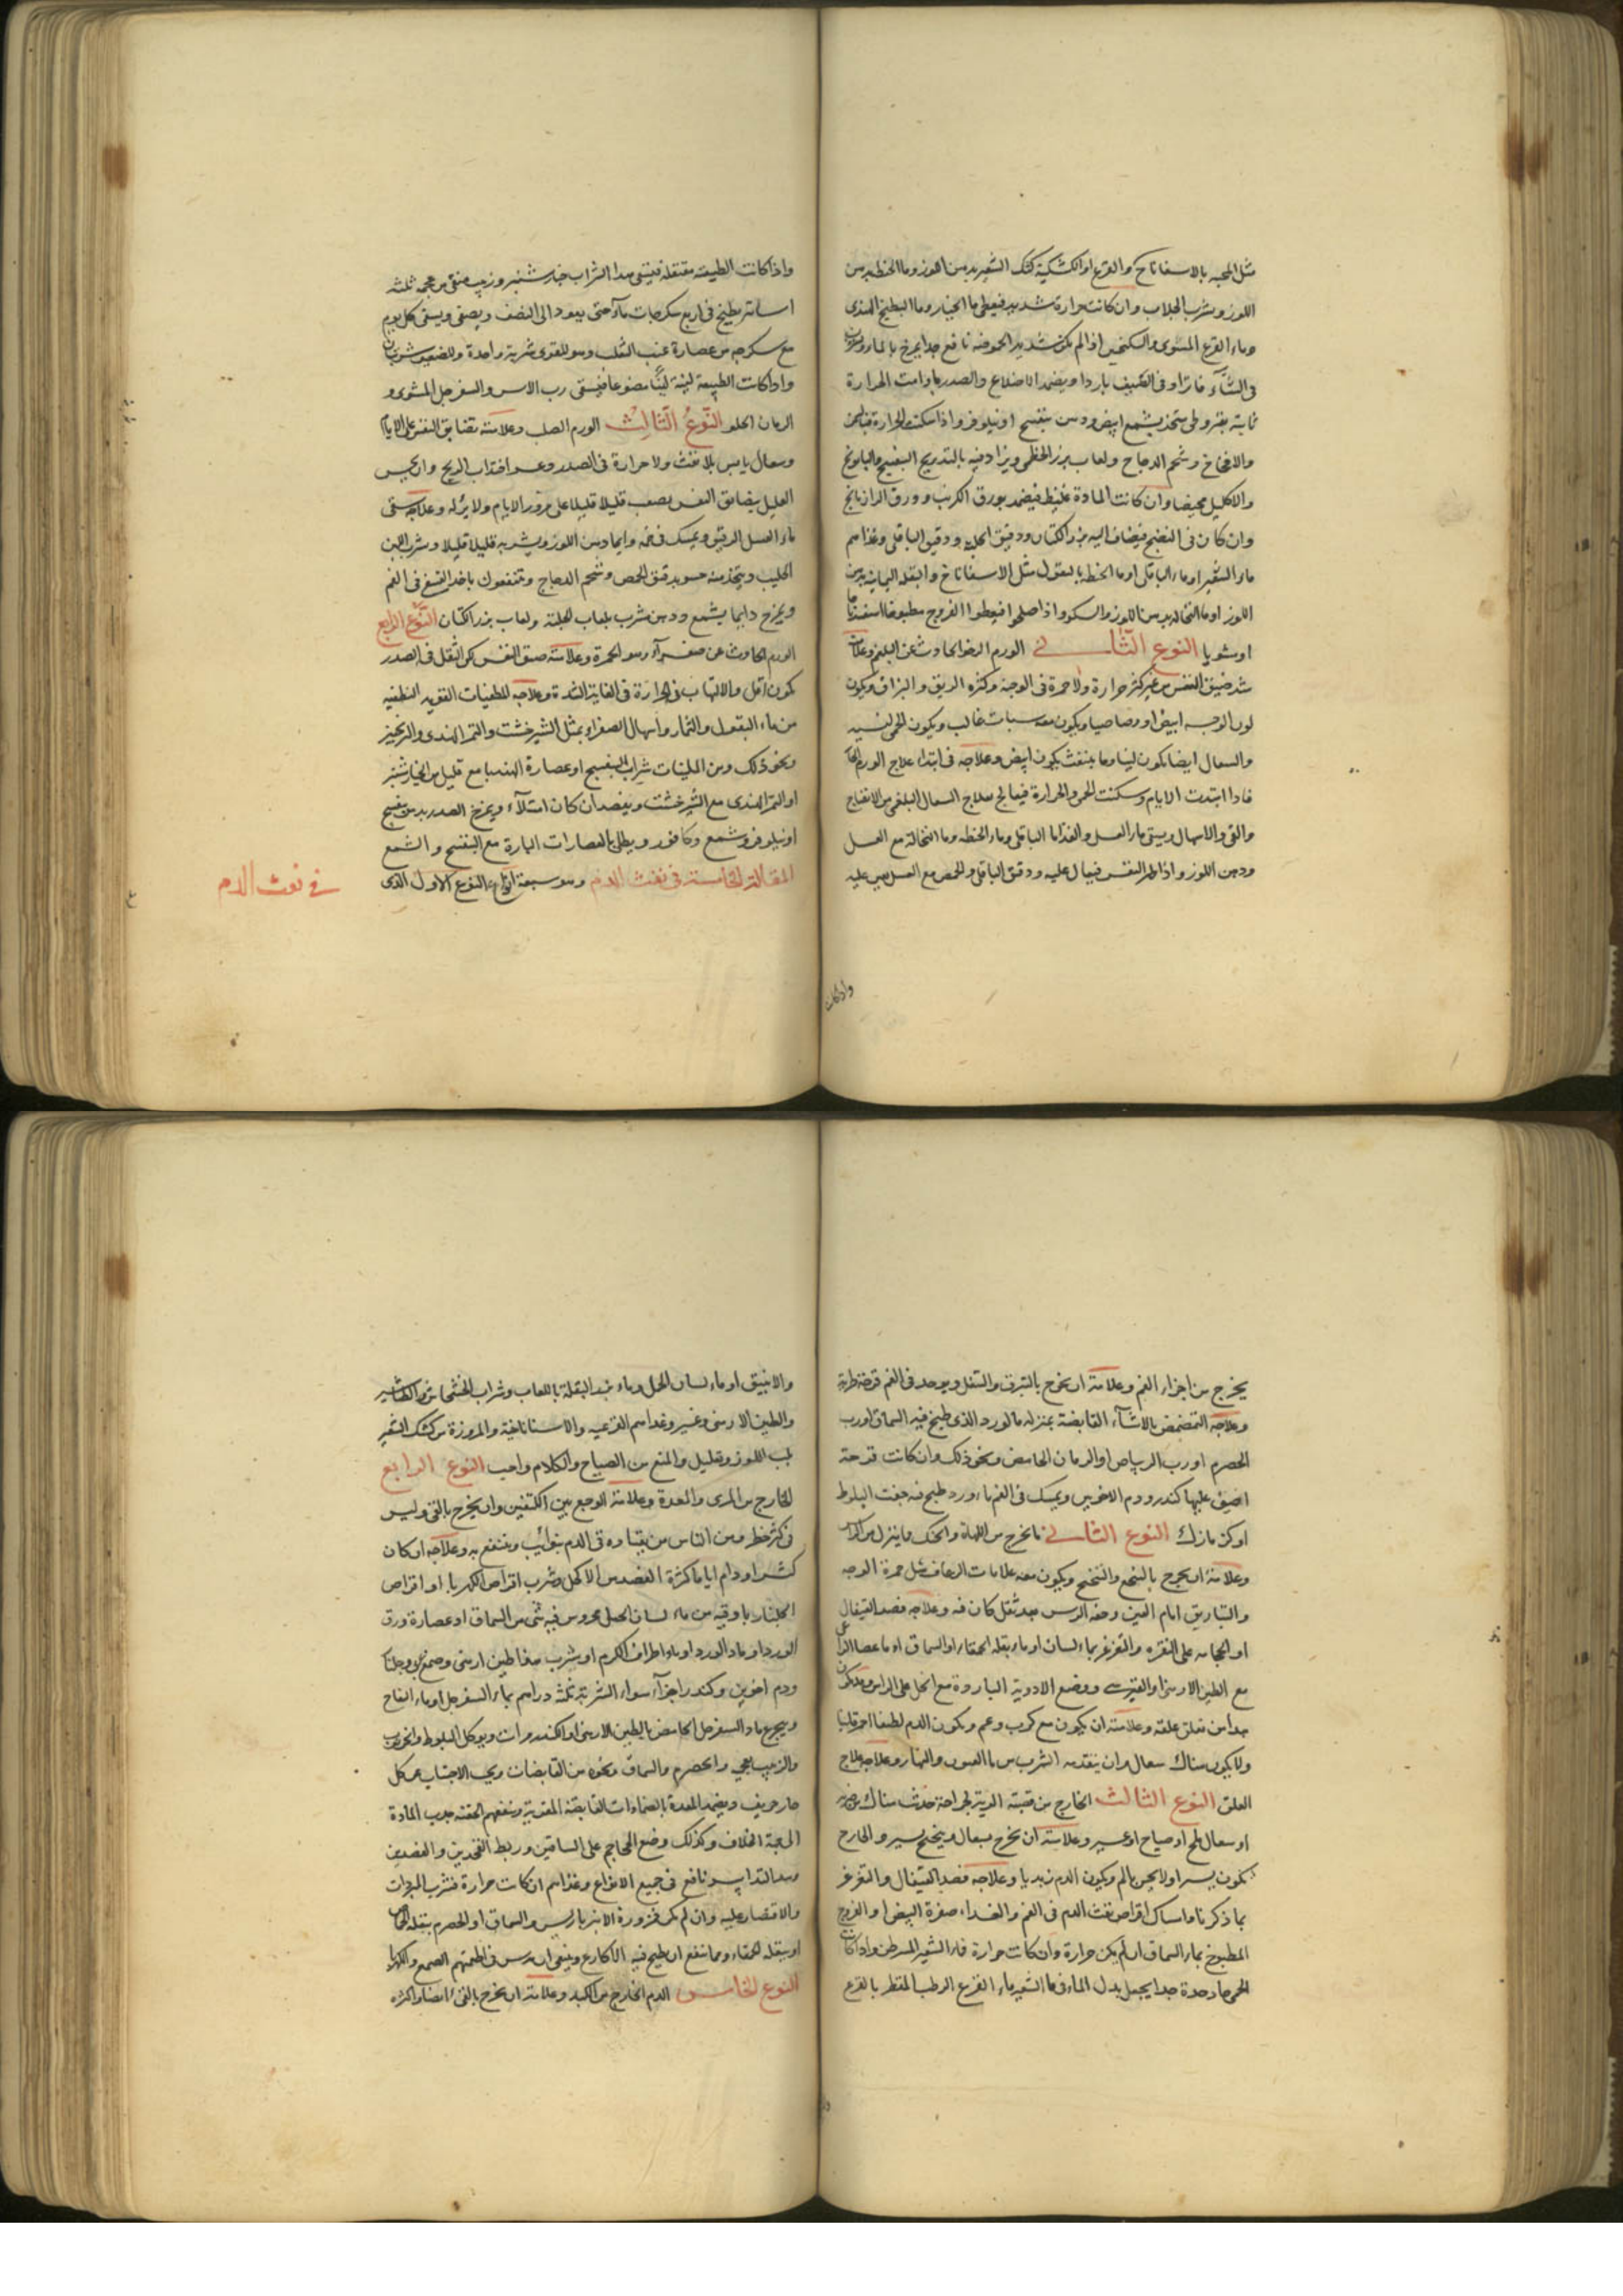 مثل المحيه بالاسفاناخ والقرع او الكشكية كشك الشعير بدهن اللوز وماء الحنطة بدهن
اللوز وشرب الجلاب وان كانت حرارة شديدة فيعطى ماء الخيار وماء البطيخ الهندى
وماء القرع المشوى والسكنجبين اذا لم يكن شديد الحموضة نافع جدا يمرخ بالماء
فى الشتاء فاترا وفى الصيف باردا ويضمد الاضلاع والصدر ما دامت الحرارة
ثابتة بقيروطى متخذ بشمع ابيض ودهن بنفسج او نيلوفر واذا سكنت الحرارة
والافخاخ وشحم الدجاج ولعاب بزر الخطمى ويزاد فيه بالتدريج البنفسج والبابونج
والاكليل وان كانت المادة غليظة فيضمد بورق الكرنب وورق الرازيانج
وان كان فى النضج فيضاف اليه بزر الكتان ودقيق الحلبة ودقيق الباقلى وغذاهم
ماء الشعير او ماء الباقلى او ماء الحنطة بالبقول مثل الاسفاناخ والبقلة اليمانية بدهن
اللوز او ماء النخالة بدهن اللوز والسكر واذا صلحوا فيعطوا الفروج مطبوخا
او مشويا النوع الثانى الورم الرخو الحادث عن البلغم وعلامته
شدة ضيق النفس من غير كثرة حرارة ولا حمرة فى الوجنة وكثرة الريق والبزاق ويكون
لون الوجه ابيض او رصاصيا ويكون معه سبات غالب ويكون الحمى لينة
والسعال ايضا يكون لينا وما ينفث يكون ابيض وعلاجه فى ابتداء علاج الورم
فاذا ابتدت الايام وسكنت الحمى والحرارة فيعالج بعلاج السعال البلغمى من الانضاج
والقى والاسهال ويسقى ماء العسل والغذا ماء الباقلى وماء الحنطة وماء النخالة مع العسل
ودهن اللوز واذا ظهر النفس فيعال عليه ودقيق الباقلى والحمص مع العسل
واذا كانت
واذا كانت الطبيعة معتقلة فيسقى هذا الشراب خيار شنبر وزبيب منقى من عجمه ثلثة
اساتير يطبخ فى اربع سكرجات ماء حتى يعود الى النصف ويصفى ويسقى كل يوم
مع سكرجة من عصارة عنب الثعلب وهو للقوى شربة واحدة وللضعيف شربتان
واذا كانت الطبيعة لينة فيسقى رب الآس والسفرجل المشوى و
الرمان الحلو النوع الثالث الورم الصلب وعلامته تضايق النفس على الايام
وسعال يابس بلا نفث ولا حرارة فى الصدر وعسر اجتذاب الريح وان يحس
العليل بضايق النفس يصعب قليلا قليلا على مرور الايام ولا يزله وعلاجه سقى
ماء العسل الرقيق ويمسك فى فمه دايما دهن اللوز ويشربه قليلا قليلا وشرب اللبن
الحليب ويتخذ منه حسو بدقيق الحمص وشحم الدجاج وينتفعون باخذ البنفسج فى الفم
ويمرخ دايما بشمع ودهن شرب بلعاب الحلبة ولعاب بزر الكتان النوع الرابع
الورم الحادث عن صفراء وهو الحمرة وعلامته ضيق النفس لكن الثقل فى الصدر
يكون اقل والالتهاب والحرارة فى الغاية الشدة وعلاجه المطفيات القوية التطفية
من ماء البقول والثمار واسهال الصفراء بمثل الشيرخشت والتمر الهندى والترنجبين
ونحو ذلك ومن الملينات شراب البنفسج او عصارة الهندبا مع قليل من الخيار شنبر
او التمر الهندى مع الشيرخشت ويفصد ان كان امتلاء ويمرخ الصدر بدهن بنفسج
او نيلوفر وشمع وكافور ويطلى بالعصارات الباردة مع البنفسج والشمع
المقالة الخامسة فى نفث الدم وهو سبعة انواع النوع الاول الذى
فى نفث الدم
يخرج من اجزاء الفم وعلامته ان يخرج بالتبزق والتنفل ويوجد فى الفم قرحة طرية
وعلاجه التمضمض بالاشياء القابضة بمنزلة ماء الورد الذى طبخ فيه السماق او رب
الحصرم او رب الريباس او الرمان الحامض ونحو ذلك وان كانت قرحة
اضيف عليها كندر ودم الاخوين ويمسك فى الفم ماء ورد طبخ فيه جفت البلوط
او كزمازك النوع الثانى ما يخرج من اللهاة والحنك وما ينزل من الراس
وعلامته ان يخرج بالتنخع والتنحنح ويكون معه علامات الرعاف مثل حمرة الوجه
والتباريق امام العين وخفة الراس بعد ثقل كان فيه وعلاجه فصد القيفال
او الحجامة على النقرة والتغرغر بماء لسان او ماء بقلة الحمقاء او السماق او ماء عصا الراعى
مع الطين الارمنى او القبرسى ووضع الادوية الباردة مع الخل على الراس
جدا من تعلق علقة وعلامته ان يكون مع كرب وغم ويكون الدم لطيفا احمر قانيا
ولا يكون هناك سعال وان يتقدمه الشرب من ماء العيون والبهار وعلاجه علاج
العلق النوع الثالث الخارج من قصبة الرية لجراحة حدثت هناك من ضربة
او سعال ملح او صياح او غيره وعلامته ان يخرج بسعال وتنحنح يسير والخارج
يكون يسيرا ولا يحس بالم ويكون الدم زبديا وعلاجه فصد القيفال والتغرغر
بما ذكرنا وامساك اقراص نفث الدم فى الفم والغذاء صفرة البيض او الفروج
المطبوخ بماء السماق ان لم يكن حرارة وان كانت حرارة فماء الشعير المسرطن واذا كانت
الحمى حادة جدا يجعل بدل الماء فى ماء الشعير ماء القرع الرطب المقطر بالقرع
والانبيق او ماء لسان الحمل وماء البقلة باللعاب وشراب الخشخاش والطباشير
والطين الارمنى وغيره وغذاهم القرعية والاسفاناخية والمزورة من كشك الشعير
بلب اللوز وتقليل والمنع من الصياح والكلام واجب النوع الرابع
الخارج من المرى والمعدة وعلامته الوجع بين الكتفين وان يخرج بالقى وليس
فى كثير خطر ومن الناس من يعتاده قى الدم بنوائب وينتفع به وعلاجه ان كان
كثيرا ودام اياما كثيرة الفصد من الاكحل وشرب اقراص الكهربا او اقراص
الجلنار باوقية من ماء لسان الحمل ممروس فيه شى من السماق او عصارة ورق
الورد او ماء الورد او ماء اطراف الكرم او شرب طين ارمنى وصمغ عربى وجلنار
ودم اخوين وكندر اجزاء سواء الشربة ثلثة دراهم بماء السفرجل او ماء التفاح
ويتجرع ماء السفرجل الحامض بالطين الارمنى او الكندر ويوكل البلوط والخرنوب
والزبيب بعجمه والحصرم والسماق ونحوه من القابضات ويجب الاجتناب عن كل
حار حريف ويضمد المعدة بالضمادات القابضة المقوية وينفعهم الحقنة بجذب المادة
الى جهة الخلاف وكذلك وضع المحاجم على الساقين وربط الفخذين والعضدين
وهذا التدابير نافع فى جميع الانواع وغذاهم ان كانت حرارة فشرب المبردات
والاقتصار عليه وان لم يكن فزورة الانبرباريس والسماق او الحصرم ببقلة
او ببقلة الحمقاء ومما ينفع ان يطبخ فيه الاكارع وينبغى ان يدس فى اطعمتهم الصمغ والكهربا
النوع الخامس الدم الخارج من الكبد وعلامته ان يخرج بالقى ايضا واكثره